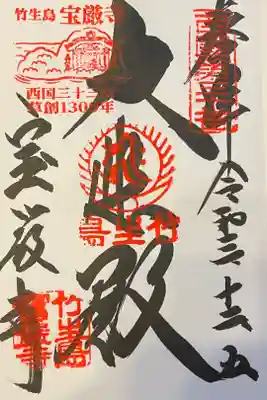 奉拝 令和三 十二 五
大悲殿
竹生島
宝厳寺
竹生島 宝厳寺
西国三十三所
草創1300年
竹生島
寳厳寺